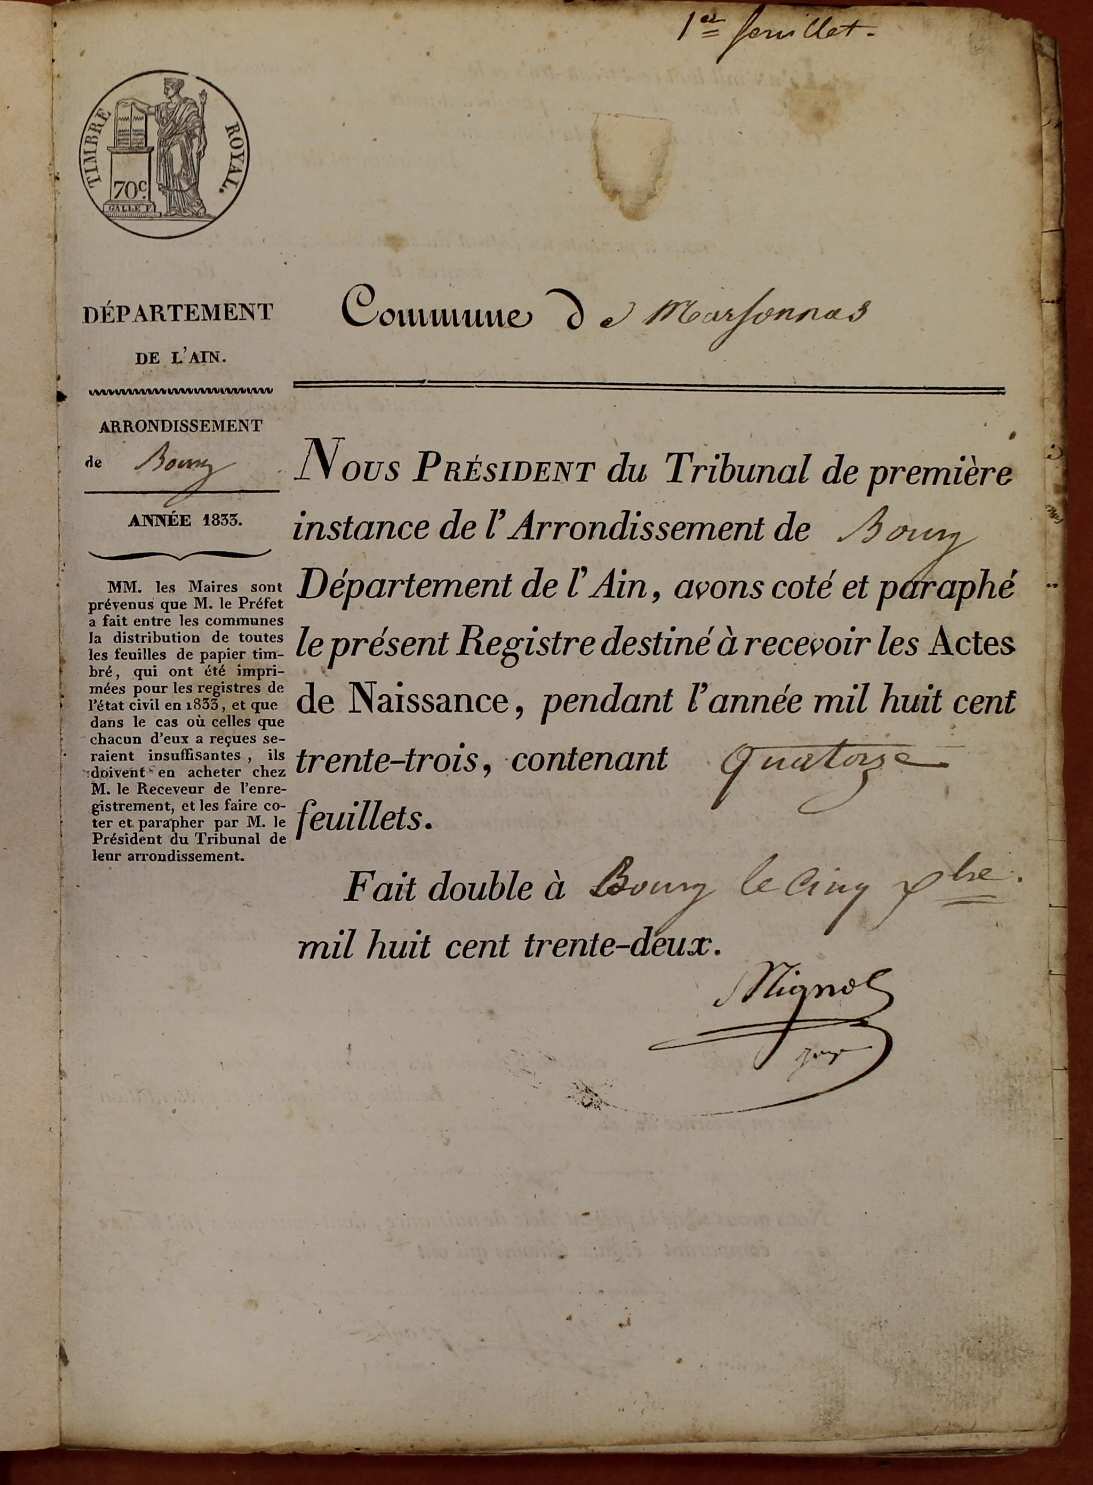 1er feuillet.
TIMBRE ROYAL.
70c.
GALLE F.
DÉPARTEMENT
DE L'AIN.
ARRONDISSEMENT
de Bourg
ANNÉE 1833.
MM. les Maires sont
prévenus que M. le Préfet
a fait entre les communes
la distribution de toutes
les feuilles de papier tim-
bré, qui ont été impri-
mées pour les registres de
l'état civil en 1833, et que
dans le cas où celles que
chacun d'eux a reçues se-
raient insuffisantes, ils
doivent en acheter chez
M. le Receveur de l'enre-
gistrement, et les faire co-
ter et parapher par M. le
Président du Tribunal de
leur arrondissement.
Commune de Marsonnas
NOUS PRÉSIDENT du Tribunal de première
instance de l'Arrondissement de Bourg
Département de l'Ain, avons coté et paraphé
le présent Registre destiné à recevoir les Actes
de Naissance, pendant l'année mil huit cent
trente-trois, contenant quatorze
feuillets.
Fait double à Bourg le cinq xbre.
mil huit cent trente-deux.